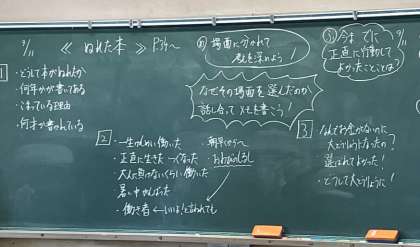 9/11
《ぬれた本》P94〜
め 場面に分かれて
考えを深めよう!
今までに
正直に行動して
よかったことは?
9/11
なぜその場面を選んだのか
話し合ってメモを書こう!
1
・どうして本がぬれたか
・何年かかが書いてある
・こまっている理由
・何才か書かれている
2
・一生けんめい働いた
・正直に生きた
・大人に負けないくらい働いた
・暑い中がんばった
・働き者 ← いいよ!と言われても
・朝早くから〜
・おわびのしるし
3
・なんでお金がないのに
選ばれてよかった!
・どうして大とうりょうに!